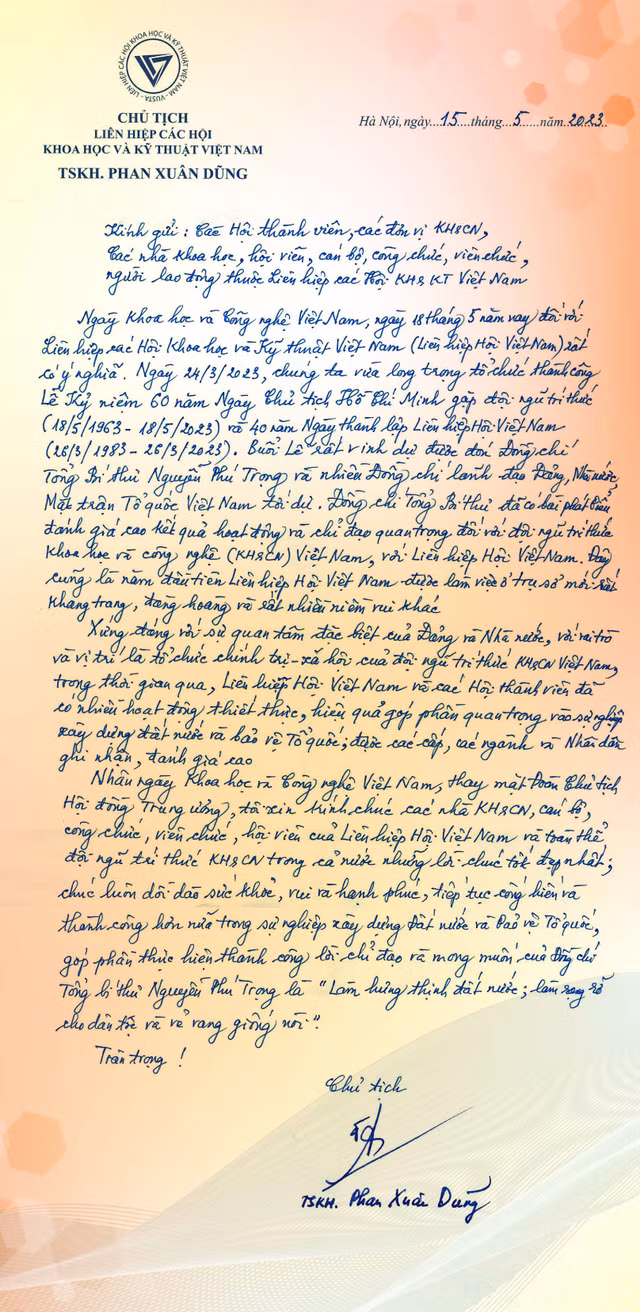 LIÊN HIỆP CÁC HỘI KHOA HỌC VÀ KỸ THUẬT VIỆT NAM - VUSTA -
CHỦ TỊCH
LIÊN HIỆP CÁC HỘI
KHOA HỌC VÀ KỸ THUẬT VIỆT NAM
TSKH. PHAN XUÂN DŨNG
Hà Nội, ngày...15...tháng...5...năm.2023.
Kính gửi: Các Hội thành viên, các đơn vị KH&CN,
Các nhà khoa học, hội viên, cán bộ, công chức, viên chức,
người lao động thuộc Liên hiệp các Hội KH&KT Việt Nam
Ngày Khoa học và Công nghệ Việt Nam, ngày 18 tháng 5 năm nay đối với
Liên hiệp các Hội Khoa học và Kỹ thuật Việt Nam (Liên hiệp Hội Việt Nam) rất
có ý nghĩa. Ngày 24/3/2023, chúng ta vừa long trọng tổ chức thành công
Lễ Kỷ niệm 60 năm Ngày Chủ tịch Hồ Chí Minh gặp đội ngũ trí thức
(18/5/1963 - 18/5/2023) và 40 năm Ngày thành lập Liên hiệp Hội Việt Nam
(26/3/1983 - 26/3/2023). Buổi Lễ rất vinh dự được đón Đồng chí
Tổng Bí thư Nguyễn Phú Trọng và nhiều Đồng chí lãnh đạo Đảng, Nhà nước,
Mặt trận Tổ quốc Việt Nam tới dự. Đồng chí Tổng Bí thư đã có bài phát biểu
đánh giá cao kết quả hoạt động và chỉ đạo quan trọng đối với đội ngũ trí thức
khoa học và công nghệ (KH&CN) Việt Nam, với Liên hiệp Hội Việt Nam. Đây
cũng là năm đầu tiên Liên hiệp Hội Việt Nam được làm việc ở trụ sở mới rất
khang trang, đàng hoàng và rất nhiều niềm vui khác
Xứng đáng với sự quan tâm đặc biệt của Đảng và Nhà nước, với vai trò
và vị trí là tổ chức chính trị - xã hội của đội ngũ trí thức KH&CN Việt Nam,
trong thời gian qua, Liên hiệp Hội Việt Nam và các Hội thành viên đã
có nhiều hoạt động thiết thực, hiệu quả góp phần quan trọng vào sự nghiệp
xây dựng đất nước và bảo vệ Tổ quốc; được các cấp, các ngành và Nhân dân
ghi nhận, đánh giá cao
Nhân ngày Khoa học và Công nghệ Việt Nam, thay mặt Đoàn Chủ tịch,
Hội đồng Trung ương, tôi xin kính chúc các nhà KH&CN, cán bộ,
công chức, viên chức, hội viên của Liên hiệp Hội Việt Nam và toàn thể
đội ngũ trí thức KH&CN trong cả nước những lời chúc tốt đẹp nhất;
chúc luôn dồi dào sức khoẻ, vui và hạnh phúc, tiếp tục cống hiến và
thành công hơn nữa trong sự nghiệp xây dựng Đất nước và Bảo vệ Tổ quốc,
góp phần thực hiện thành công lời chỉ đạo và mong muốn của Đồng chí
Tổng bí thư Nguyễn Phú Trọng là "Làm hưng thịnh đất nước; làm rạng rỡ
cho dân tộc và vẻ vang giống nòi".
Trân trọng !
Chủ tịch
TSKH. Phan Xuân Dũng